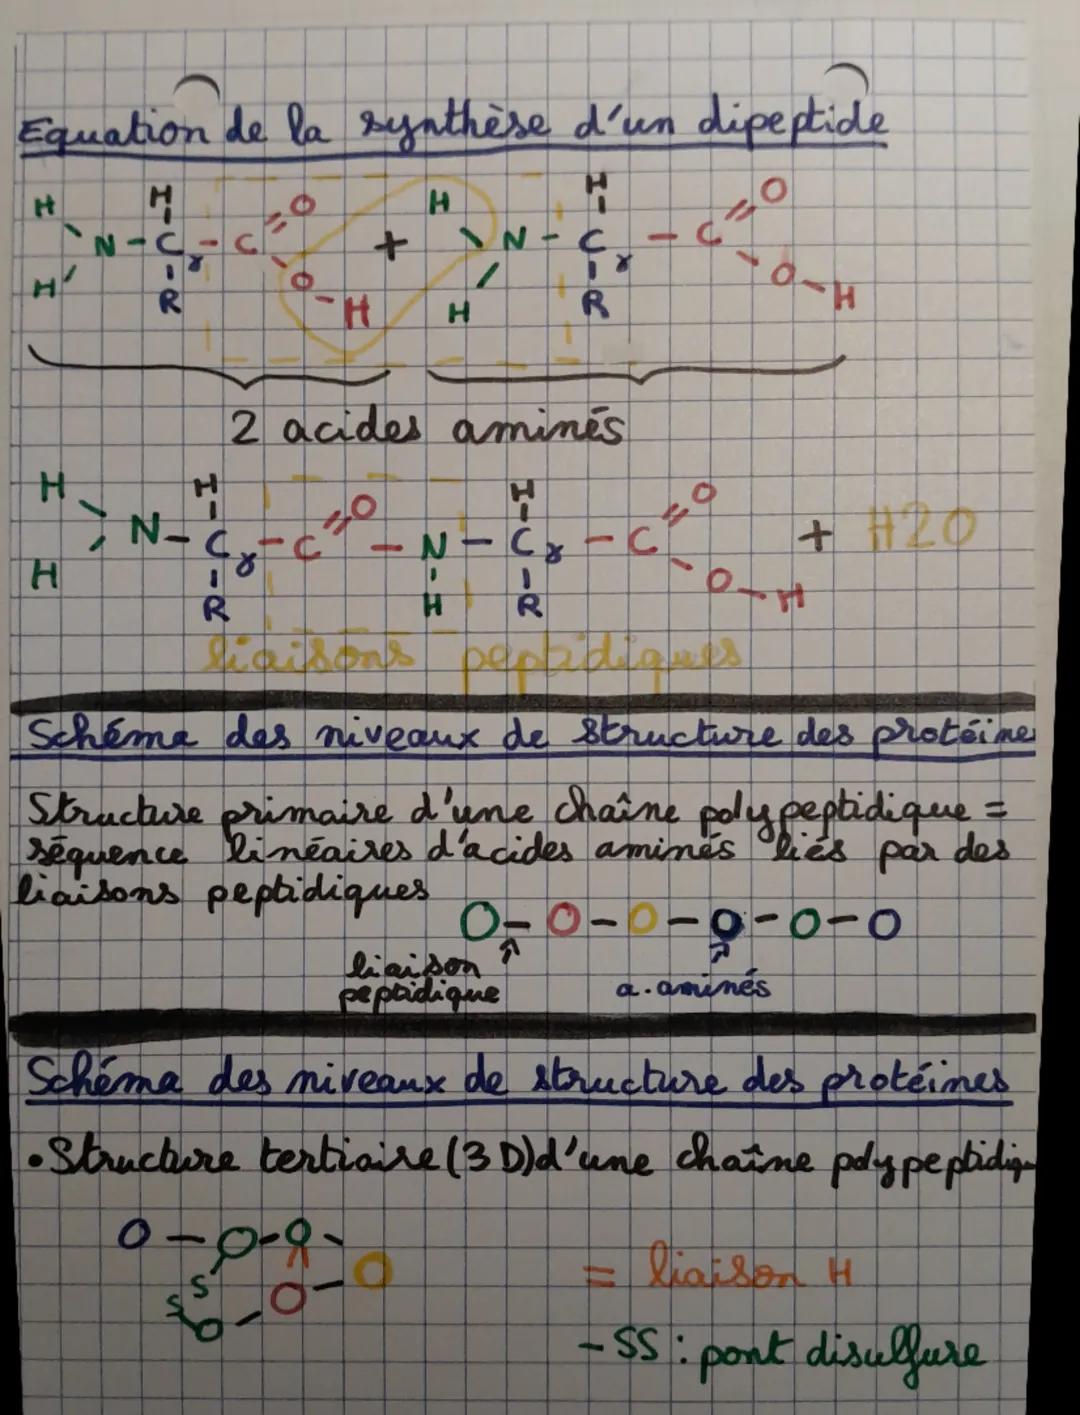 Equation de la synthèse d'un dipeptide
H H O H H O
N - C - C + N - C - C
H R O - H H R O - H
2 acides aminés
H H O H O
N - C - C - N - C - C + H2O
H R H R O - H
liaisons peptidiques
Schéma des niveaux de structure des protéines
Structure primaire d'une chaîne polypeptidique =
séquence linéaires d'acides aminés liés par des
liaisons peptidiques
liaison
peptidique
a. aminés
Schéma des niveaux de structure des protéines
• Structure tertiaire (3D) d'une chaîne polypeptidiqu
S
S
= liaison H
- SS : pont disulfure